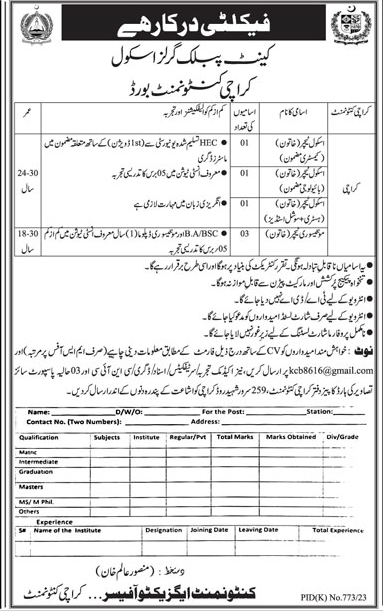 فیکلٹی درکار ہے
کینٹ پبلک گرلز اسکول
کراچی کنٹونمنٹ بورڈ
کراچی کنٹونمنٹ اسامی کا نام اسامیوں کی تعداد کم از کم کوالیفکیشنز اور تجربہ عمر
کراچی
اسکول ٹیچر (خاتون) (کیمسٹری مضمون) 01
اسکول ٹیچر (خاتون) (بائیولوجی مضمون) 01
اسکول ٹیچر (خاتون) (ہسٹری + سوشل اسٹڈیز) 01
HEC تسلیم شدہ یونیورسٹی سے (1st ڈویژن) کے ساتھ متعلقہ مضمون میں ماسٹرز ڈگری
معروف انسٹی ٹیوشن میں 05 برس کا تدریسی تجربہ
انگریزی زبان میں مہارت لازمی ہے
24-30 سال
مونٹیسوری ٹیچر (خاتون) 03
B.A/BSC اور مونٹیسوری ڈپلوما (1) سال معروف انسٹی ٹیوشن میں کم از کم 05 برس کا تدریسی تجربہ
18-30 سال
یہ اسامیاں ناقابل تبادلہ ہونگی۔ تقرر کنٹریکٹ کی بنیاد پر ہوگا اور اسی طرح برقرار رہے گا۔
تنخواہ پیکیج پرکشش اور مارکیٹ پیٹرن سے قابل موازنہ ہوگا۔
انٹرویو کے لیے ٹی اے/ڈی اے نہیں دیا جائے گا۔
انٹرویو کے لیے صرف شارٹ لسٹڈ امیدواروں کو مدعو کیا جائے گا۔
نامکمل پروفارما شارٹ لسٹنگ کے لیے زیر غور نہیں لایا جائے گا۔
نوٹ: خواہش مند امیدواروں کو CV کے ساتھ درج ذیل فارمیٹ کے مطابق معلومات دینی چاہیے (صرف ایم ایس آفس پر مرتبہ) اور
kcb8616@gmail.com پر ارسال کریں، نیز اکیڈمک تجربہ/سرٹیفکیٹس/اسناد/ڈگری/سی این آئی سی اور 03 حالیہ پاسپورٹ سائز
تصاویر کی ہارڈ کاپیز دفتر کراچی کنٹونمنٹ، 259 سرور شہید روڈ کراچی کو اشاعت کے پندرہ دنوں کے اندر ارسال کردیں۔
Name: D/W/O: For the Post: Station:
Contact No. (Two Numbers): Address:
Qualification Subjects Institute Regular/Pvt Total Marks Marks Obtained Div/Grade
Matric
Intermediate
Graduation
Masters
MS/ M Phil.
Others
Experience
S# Name of the Institute Designation Joining Date Leaving Date Total Experience
دستخط: (منصور عالم خان)
کنٹونمنٹ ایگزیکٹو آفیسر۔ کراچی کنٹونمنٹ
PID(K) No.773/23